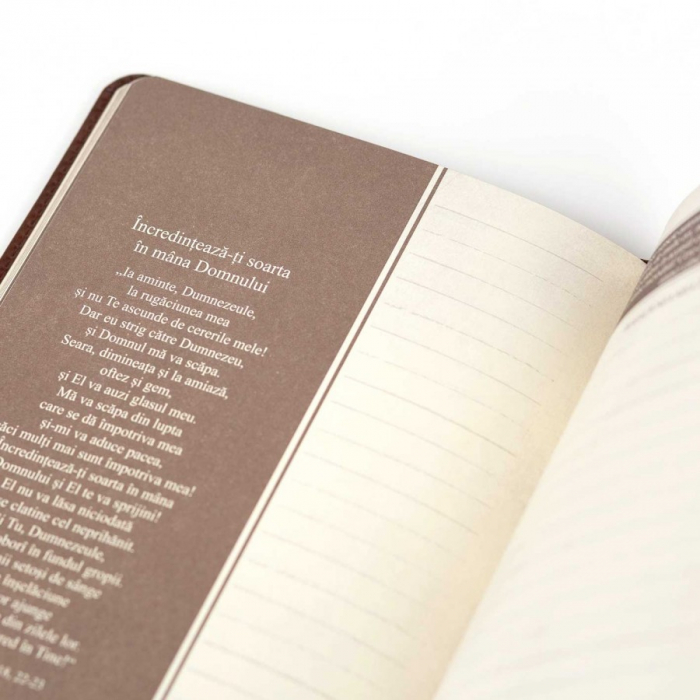 Încredințează-ți soarta
în mâna Domnului
„Ia aminte, Dumnezeule,
la rugăciunea mea
și nu Te ascunde de cererile mele!
Dar eu strig către Dumnezeu,
și Domnul mă va scăpa.
Seara, dimineața și la amiază,
oftez și gem,
și El va auzi glasul meu.
Mă va scăpa din lupta
care se dă împotriva mea
și-mi va aduce pacea,
mulți mai sunt împotriva mea!
Încredințează-ți soarta în mâna
Domnului și El te va sprijini!
El nu va lăsa niciodată
clatine cel neprihănit.
Tu, Dumnezeule,
în fundul gropii.
setoși de sânge
înșelăciune
ajunge
din zilele lor.
în Tine!”
22-23